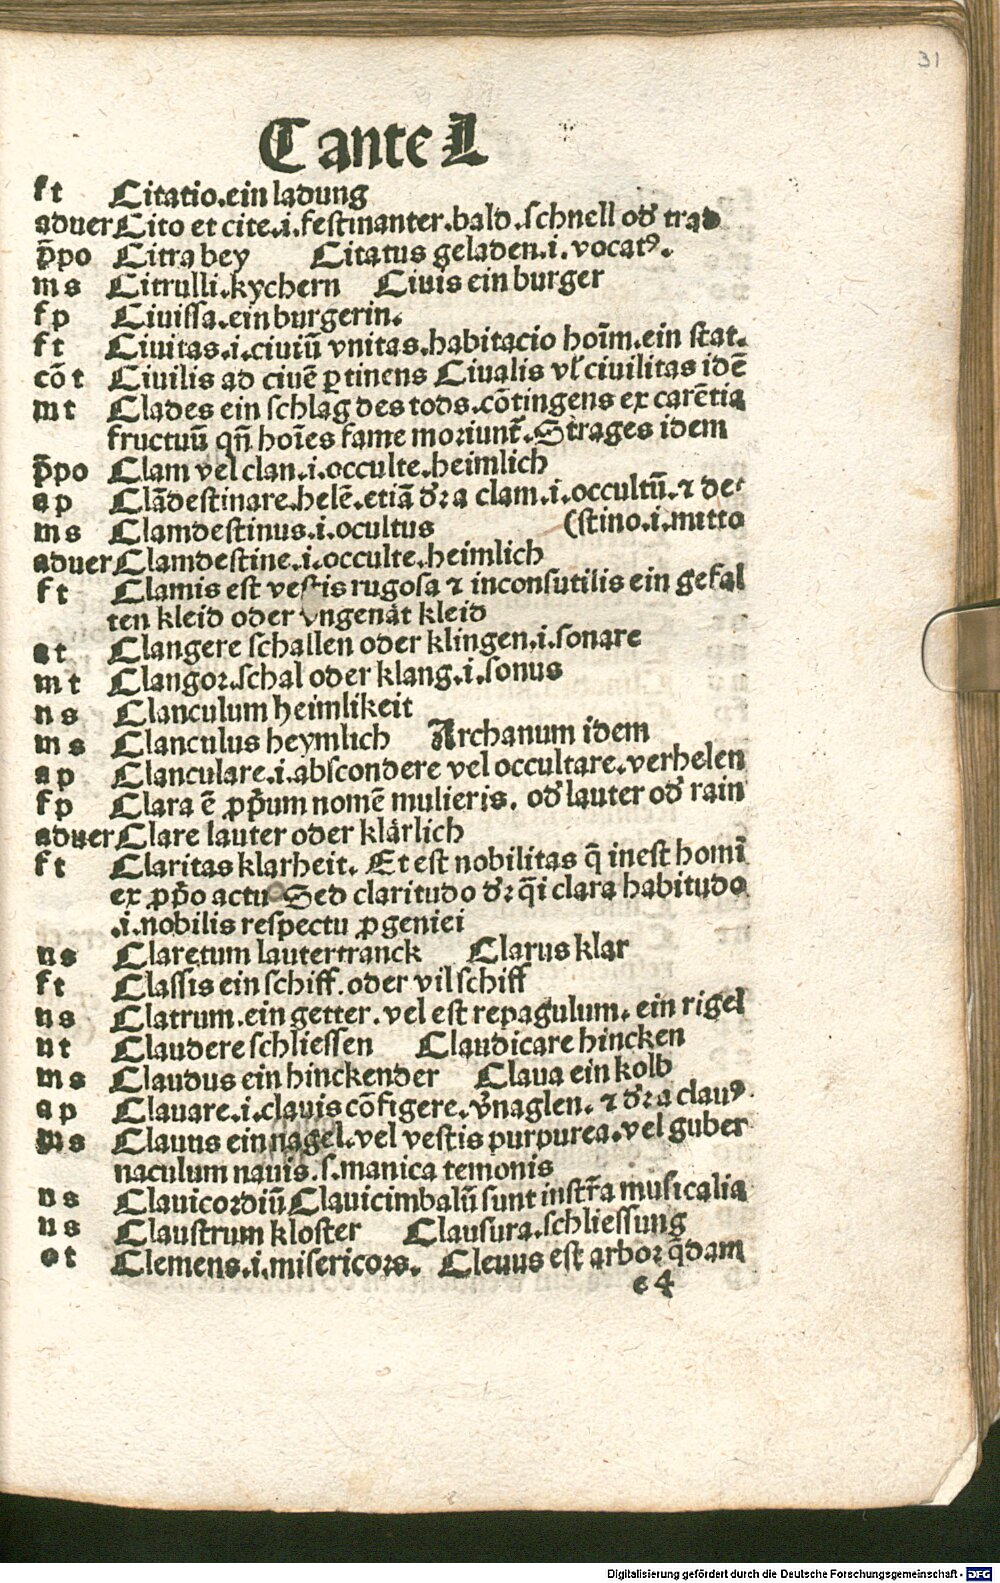 31
C ante L
ft Citatio.ein ladung
aduer Cito et cite.i.festinanter.bald.schnell od̕ trad
p̄po Citra bey Citatus geladen.i.vocatꝰ.
ms Citrulli.kychern Ciuis ein burger
fp Ciuissa.ein burgerin.
ft Ciuitas.i.ciuiū vnitas.habitacio hoīm.ein stat.
cōt Ciuilis ad ciuē ꝑtinens Ciualis vl̕ ciuilitas idē
mt Clades ein schlag des tods.cōtingens ex carētia
fructuū qn̄ hoīes fame moriunt̄.Strages idem
p̄po Clam vel clan.i.occulte.heimlich
ap Clādestinare.helē.etiā d̕r a clam.i.occultū.⁊ de⸗
ms Clamdestinus.i.ocultus (stino.i.mitto
aduer Clamdestine.i.occulte.heimlich
ft Clamis est vestis rugosa ⁊ inconsutilis ein gefal
ten kleid oder vngenät kleid
at Clangere schallen oder klingen.i.sonare
mt Clangor.schal oder klang.i.sonus
ns Clanculum heimlikeit
ms Clanculus heymlich Archanum idem
ap Clanculare.i.abscondere vel occultare.verhelen
fp Clara ē ꝓp̄um nomē mulieris. od̕ lauter od̕ rain
aduer Clare lauter oder klärlich
ft Claritas klarheit. Et est nobilitas q̄ inest homī
ex ꝓp̄o actu Sed claritudo d̕r q̄i clara habitudo
.i.nobilis respectu ꝓgeniei
ns Claretum lautertranck Clarus klar
ft Classis ein schiff.oder vil schiff
ns Clatrum.ein getter.vel est repagulum.ein rigel
nt Claudere schliessen Claudicare hincken
ms Claudus ein hinckender Claua ein kolb
ap Clauare.i.clauis cōfigere.v̕naglen.⁊ d̕r a clauꝰ.
ms Clauus ein nagel.vel vestis purpurea.vel guber
naculum nauis.s.manica temonis
ns Clauicordiū Clauicimbalū sunt instr̄a musicalia
ns Claustrum kloster Clausura.schliessung
ot Clemens.i.misericors. Cleuus est arbor q̄dam
e 4
Digitalisierung gefördert durch die Deutsche Forschungsgemeinschaft - DFG